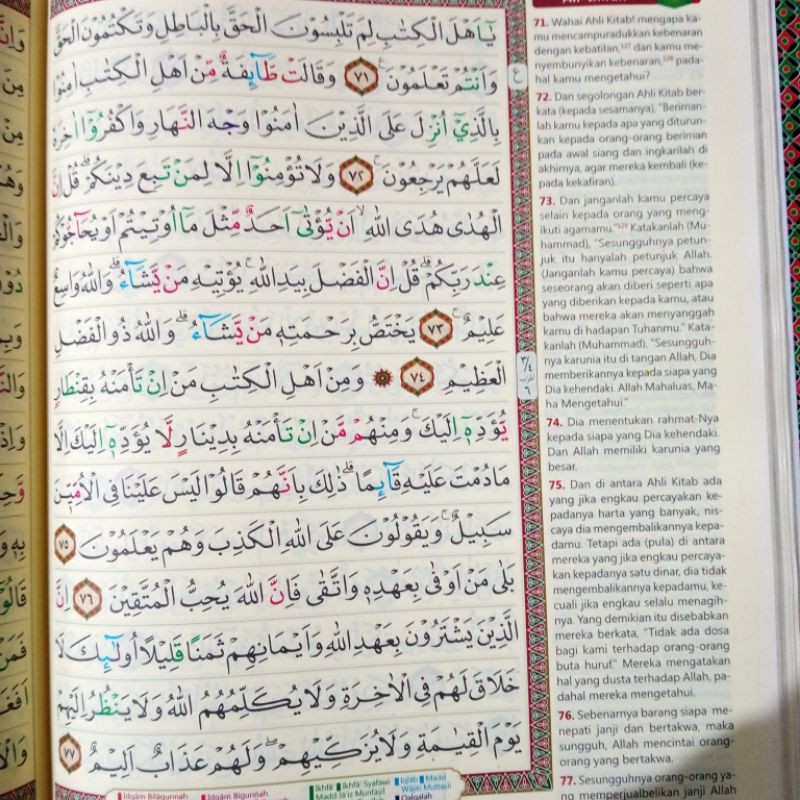 يٰٓاَهْلَ الْكِتٰبِ لِمَ تَلْبِسُوْنَ الْحَقَّ بِالْبَاطِلِ وَتَكْتُمُوْنَ الْحَقَّ
وَاَنْتُمْ تَعْلَمُوْنَ ࣖ ٧١ وَقَالَتْ طَّاۤىِٕفَةٌ مِّنْ اَهْلِ الْكِتٰبِ اٰمِنُوْا
بِالَّذِيْٓ اُنْزِلَ عَلَى الَّذِيْنَ اٰمَنُوْا وَجْهَ النَّهَارِ وَاكْفُرُوْٓا اٰخِرَهٗ
لَعَلَّهُمْ يَرْجِعُوْنَۚ ٧٢ وَلَا تُؤْمِنُوْٓا اِلَّا لِمَنْ تَبِعَ دِيْنَكُمْۗ قُلْ اِنَّ
الْهُدٰى هُدَى اللّٰهِۙ اَنْ يُّؤْتٰىٓ اَحَدٌ مِّثْلَ مَآ اُوْتِيْتُمْ اَوْ يُحَاۤجُّوْكُمْ
عِنْدَ رَبِّكُمْۗ قُلْ اِنَّ الْفَضْلَ بِيَدِ اللّٰهِۚ يُؤْتِيْهِ مَنْ يَّشَاۤءُۗ وَاللّٰهُ وَاسِعٌ
عَلِيْمٌۚ ٧٣ يَخْتَصُّ بِرَحْمَتِهٖ مَنْ يَّشَاۤءُۗ وَاللّٰهُ ذُو الْفَضْلِ
الْعَظِيْمِ ٧٤ ۞ وَمِنْ اَهْلِ الْكِتٰبِ مَنْ اِنْ تَأْمَنْهُ بِقِنْطَارٍ
يُّؤَدِّهٖٓ اِلَيْكَۚ وَمِنْهُمْ مَّنْ اِنْ تَأْمَنْهُ بِدِيْنَارٍ لَّا يُؤَدِّهٖٓ اِلَيْكَ اِلَّا
مَا دُمْتَ عَلَيْهِ قَاۤىِٕمًاۗ ذٰلِكَ بِاَنَّهُمْ قَالُوْا لَيْسَ عَلَيْنَا فِى الْاُمِّيّٖنَ
سَبِيْلٌۚ وَيَقُوْلُوْنَ عَلَى اللّٰهِ الْكَذِبَ وَهُمْ يَعْلَمُوْنَ ٧٥
بَلٰى مَنْ اَوْفٰى بِعَهْدِهٖ وَاتَّقٰى فَاِنَّ اللّٰهَ يُحِبُّ الْمُتَّقِيْنَ ٧٦ اِنَّ
الَّذِيْنَ يَشْتَرُوْنَ بِعَهْدِ اللّٰهِ وَاَيْمَانِهِمْ ثَمَنًا قَلِيْلًا اُولٰۤىِٕكَ لَا
خَلَاقَ لَهُمْ فِى الْاٰخِرَةِ وَلَا يُكَلِّمُهُمُ اللّٰهُ وَلَا يَنْظُرُ اِلَيْهِمْ
يَوْمَ الْقِيٰمَةِ وَلَا يُزَكِّيْهِمْۖ وَلَهُمْ عَذَابٌ اَلِيْمٌ ٧٧
71. Wahai Ahli Kitab! mengapa ka-
mu mencampuradukkan kebenaran
dengan kebatilan,127 dan kamu me-
nyembunyikan kebenaran,128 pada-
hal kamu mengetahui?
72. Dan segolongan Ahli Kitab ber-
kata (kepada sesamanya), "Beriman-
lah kamu kepada apa yang diturun-
kan kepada orang-orang beriman
pada awal siang dan ingkarilah di
akhirnya, agar mereka kembali (ke-
pada kekafiran).
73. Dan janganlah kamu percaya
selain kepada orang yang meng-
ikuti agamamu."129 Katakanlah (Mu-
hammad), "Sesungguhnya petun-
juk itu hanyalah petunjuk Allah.
(Janganlah kamu percaya) bahwa
seseorang akan diberi seperti apa
yang diberikan kepada kamu, atau
bahwa mereka akan menyanggah
kamu di hadapan Tuhanmu." Kata-
kanlah (Muhammad), "Sesungguh-
nya karunia itu di tangan Allah, Dia
memberikannya kepada siapa yang
Dia kehendaki. Allah Mahaluas, Ma-
ha Mengetahui."
74. Dia menentukan rahmat-Nya
kepada siapa yang Dia kehendaki.
Dan Allah memiliki karunia yang
besar.
75. Dan di antara Ahli Kitab ada
yang jika engkau percayakan ke-
padanya harta yang banyak, nis-
caya dia mengembalikannya kepa-
damu. Tetapi ada (pula) di antara
mereka yang jika engkau percaya-
kan kepadanya satu dinar, dia tidak
mengembalikannya kepadamu, ke-
cuali jika engkau selalu menagih-
nya. Yang demikian itu disebabkan
mereka berkata, "Tidak ada dosa
bagi kami terhadap orang-orang
buta huruf." Mereka mengatakan
hal yang dusta terhadap Allah, pa-
dahal mereka mengetahui.
76. Sebenarnya barang siapa me-
nepati janji dan bertakwa, maka
sungguh, Allah mencintai orang-
orang yang bertakwa.
77. Sesungguhnya orang-orang ya-
ng memperjualbelikan janji Allah
Idgām Bilāgunnah
Idgām Bigunnah
Ikhfā'
Ikhfā' Syafawi
Madd Jā'iz Munfaṣil
Iqlāb
Madd
Wājib Muttaṣil
Qalqalah